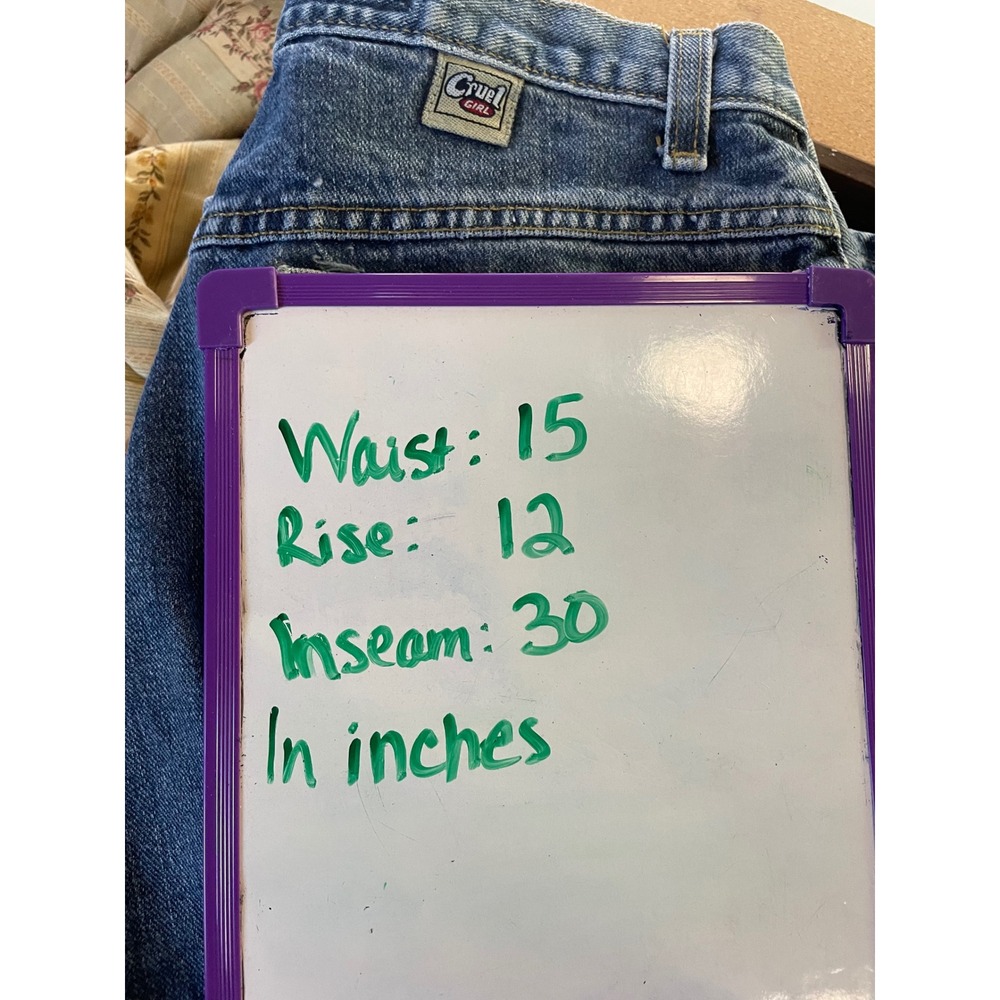 Cruel
GIRL
Waist: 15
Rise: 12
Inseam: 30
In inches